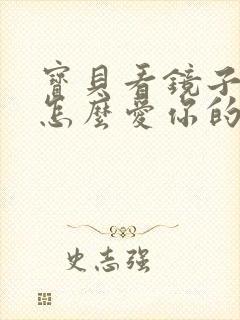 寶貝看鏡子
怎麼愛你的
史志强